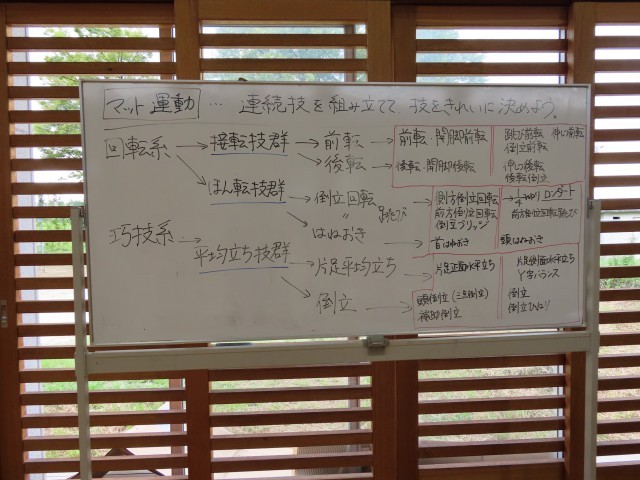 マット運動 … 連続技を組み立てて、技をきれいに決めよう。
回転系 → 接転技群 → 前転 → 前転・開脚前転 跳び前転 伸しつ前転
倒立前転
→ 後転 → 後転・開脚後転 伸しつ後転
後転倒立
→ ほん転技群 → 倒立回転 跳び 側方倒立回転 → ロンダート
〃 前方倒立回転 前方倒立回転跳び
倒立ブリッジ
→ はねおき → 首はねおき 頭はねおき
巧技系 → 平均立ち技群 → 片足平均立ち → 片足正面水平立ち 片足側面水平立ち
Y字バランス
→ 倒立 → 頭倒立(三点倒立) 倒立
補助倒立 倒立ひねり